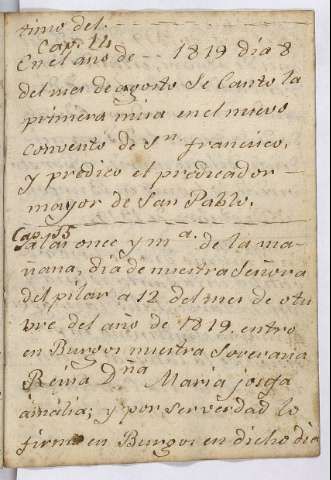 timo del.
Cap. 14
En el ano de -- 1819 dia 8
del mes de agosto se Canto la
primera misa en el nuevo
convento de Sn. francisco,
y predico el predicador -
mayor de San Pablo.
Cap. 15
A las once y ma. de la ma-
ñana, dia de nuestra señora
del pilar a 12 del mes de otu
vre del año de 1819. entro
en Burgos nuestra Soverana
Reina Dña Maria josefa
amàlia; y por ser verdad lo
firmo en Burgos en dicho dia